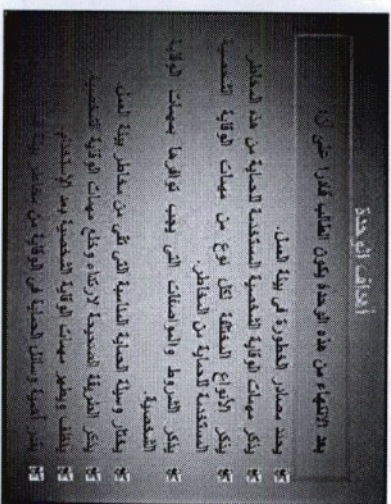 أهداف الوحدة
بعد الانتهاء من هذه الوحدة يكون الطالب قادرا على أن:
يحدد مصادر الخطورة في بيئة العمل.
يذكر مهمات الوقاية الشخصية المستخدمة للحماية من هذه المخاطر.
يذكر الأنواع المختلفة لكل نوع من مهمات الوقاية الشخصية
المستخدمة للحماية من المخاطر.
يذكر الشروط والمواصفات التي يجب توافرها بمهمات الوقاية
الشخصية.
يختار وسيلة الحماية المناسبة التي تقى من مخاطر بيئة العمل.
يذكر الطريقة الصحيحة لارتداء وخلع مهمات الوقاية الشخصية
ينظف ويطهر مهمات الوقاية الشخصية بعد الاستخدام
يقدر أهمية وسائل الحماية في الوقاية من مخاطر بيئة